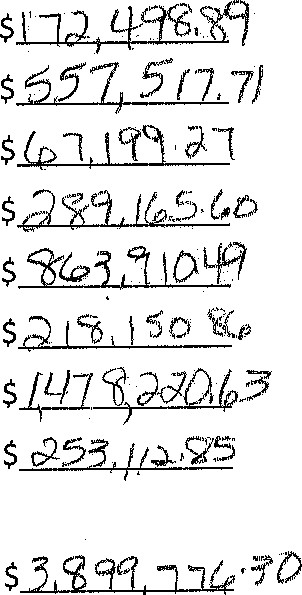 $172,498.89
$557,517.71
$67,199.27
$289,165.60
$863,910.49
$218,150.86
$1,478,220.63
$253,112.85
$3,899,776.30